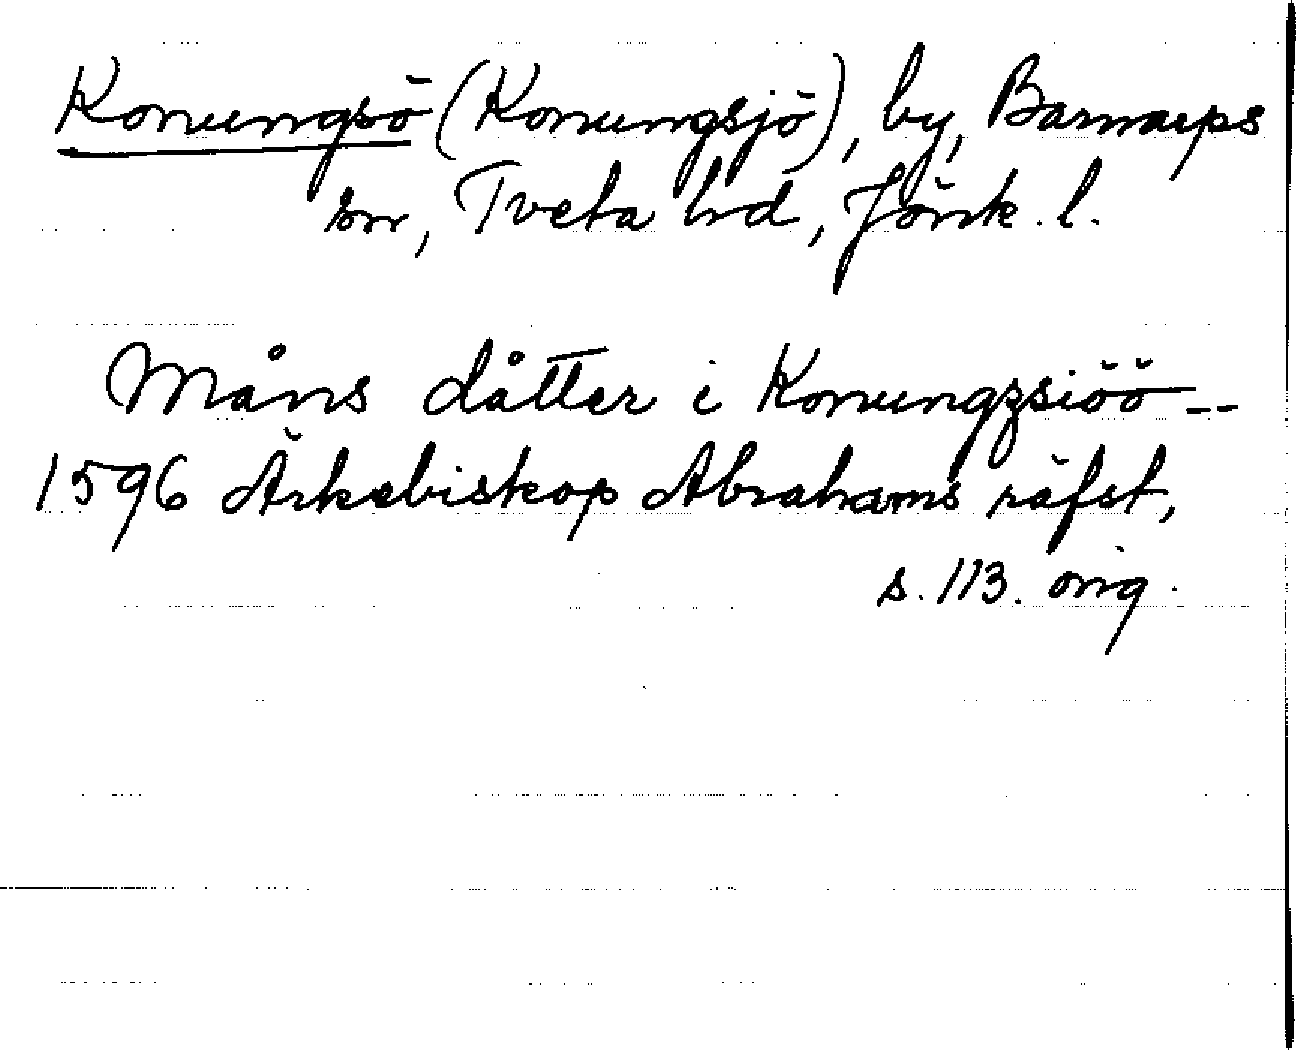 Konungsö (Konungsjö), by, Barnarps
sn, Tveta hd, Jönk. l.
Måns dåtter i Konungzsiöö --
1596 Ärkebiskop Abrahams räfst,
s. 113. orig.